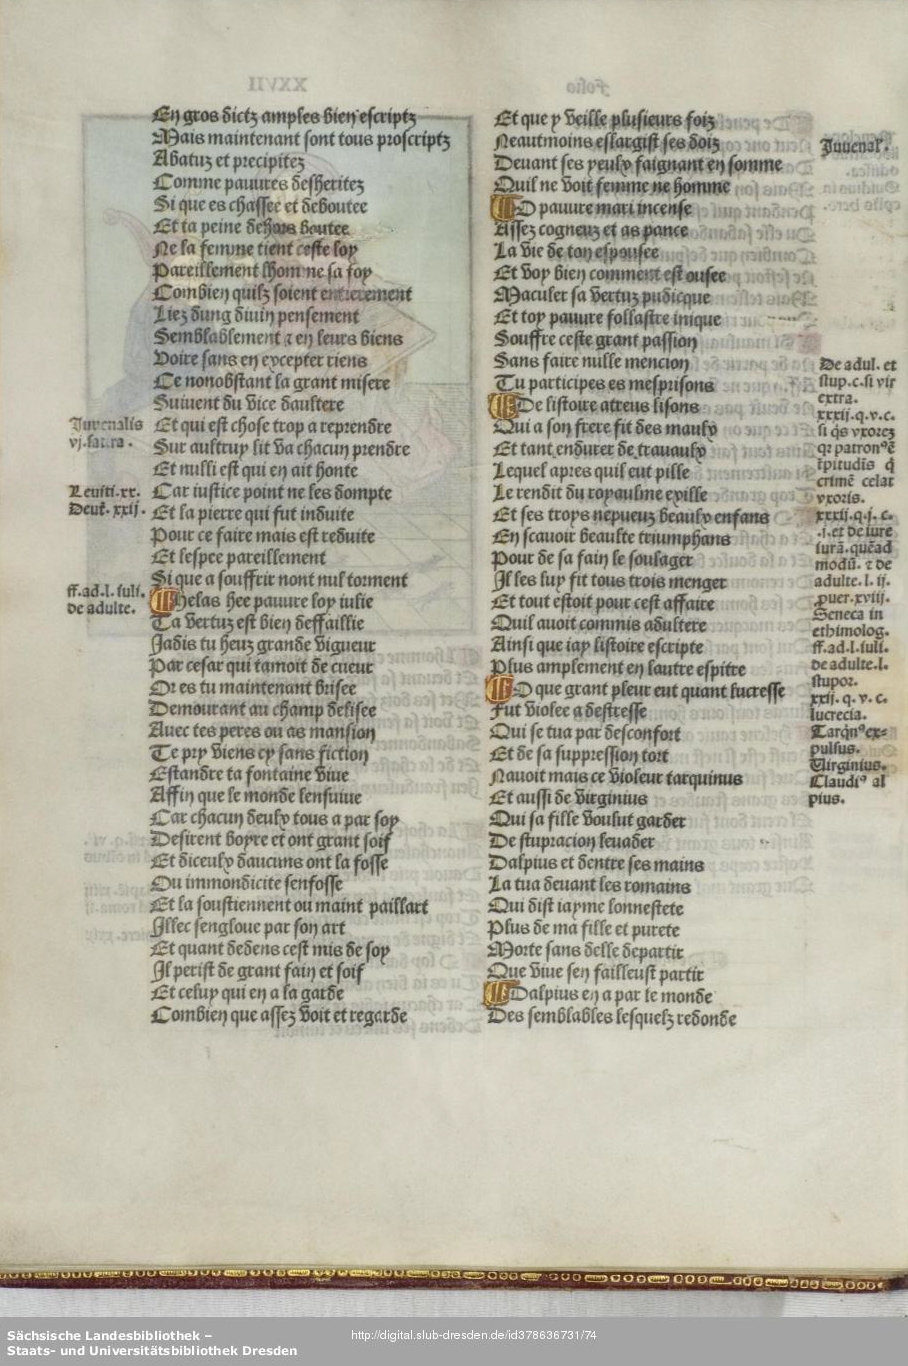 En gros dictz amples bien escriptz
Mais maintenant sont tous proscriptz
Abatuz et precipitez
Comme pauures desheritez
Si que es chassee et deboutee
Et ta peine dehors boutee
Ne la femme tient ceste loy
Pareillement lhomme sa foy
Combien quilz soient entierement
Liez dung diuin pensement
Semblablement ⁊ en leurs biens
Voire sans en excepter riens
Ce nonobstant la grant misere
Suiuent du vice daultere
Et qui est chose trop a reprendre
Sur aultruy lit va chacun prendre
Et nulli est qui en ait honte
Car iustice point ne les dompte
Et la pierre qui fut induite
Pour ce faire mais est reduite
Et lespee pareillement
Si que a souffrir nont nul torment
Helas hee pauure loy iulie
Ta vertuz est bien deffaillie
Jadis tu heuz grande vigueur
Par cesar qui tamoit de cueur
Or es tu maintenant brisee
Demourant au champ delisee
Auec tes peres ou as mansion
Te pry viens cy sans fiction
Estandre ta fontaine viue
Affin que le monde lensuiue
Car chacun deulx tous a par soy
Desirent boyre et ont grant soif
Et diceulx daucuns ont la fosse
Ou immondicite senfosse
Et la soustiennent ou maint paillart
Illec sengloue par son art
Et quant dedens cest mis de soy
Il perist de grant fain et soif
Et celuy qui en a la garde
Combien que assez voit et regarde
Juuenalis
vj. satira.
Leuiti. xx.
Deut. xxij.
ff. ad. l. iuli.
de adulte.
Et que y veille plusieurs foiz
Neautmoins eslargist ses doiz
Deuant ses yeulx faignant en somme
Quil ne voit femme ne homme
O pauure mari incense
Assez cogneuz et as pance
La vie de ton espousee
Et voy bien comment est ousee
Maculer sa vertuz pudicque
Et toy pauure follastre inique
Souffre ceste grant passion
Sans faire nulle mencion
Tu participes es mesprisons
De listoire atreus lisons
Qui a son frere fit des maulx
Et tant endurer de trauaulx
Lequel apres quil eut pille
Le rendit du royaulme exille
Et ses troys nepueuz beaulx enfans
En scauoir beaulte triumphans
Pour de sa fain le soulager
Il les luy fit tous trois menger
Et tout estoit pour cest affaire
Quil auoit commis adultere
Ainsi que iay listoire escripte
Plus amplement en lautre espitre
O que grant pleur eut quant lucresse
Fut violee a destresse
Qui se tua par desconfort
Et de sa suppression tort
Nauoit mais ce violeur tarquinus
Et aussi de virginius
Qui sa fille voulut garder
De stupracion leuader
Dalpius et dentre ses mains
La tua deuant les romains
Qui dist iayme lonnestete
Plus de ma fille et purete
Morte sans delle departir
Que viue sen failleust partir
Dalpius en a par le monde
Des semblables lesquelz redonde
Juuenal.
De adul. et
stup. c. si vir
extra.
xxxij. q. v. c.
si q̄s vxorez
qꝛ patronꝰ ē
t̄pitudīs q̄
crimē celat
vxoris.
xxxij. q. j. c.
.j. et de iure
iurā. quēad
modū. ⁊ de
adulte. l. ij.
ꝓuer. xviij.
Seneca in
ethimolog.
ff. ad. l. iuli.
de adulte. l.
stupor.
xxij. q. v. c.
lucrecia.
Tarqͥnꝰ ex-
pulsus.
Virginius.
Claudiꝰ al
pius.
Sächsische Landesbibliothek –
Staats- und Universitätsbibliothek Dresden
http://digital.slub-dresden.de/id378636731/74